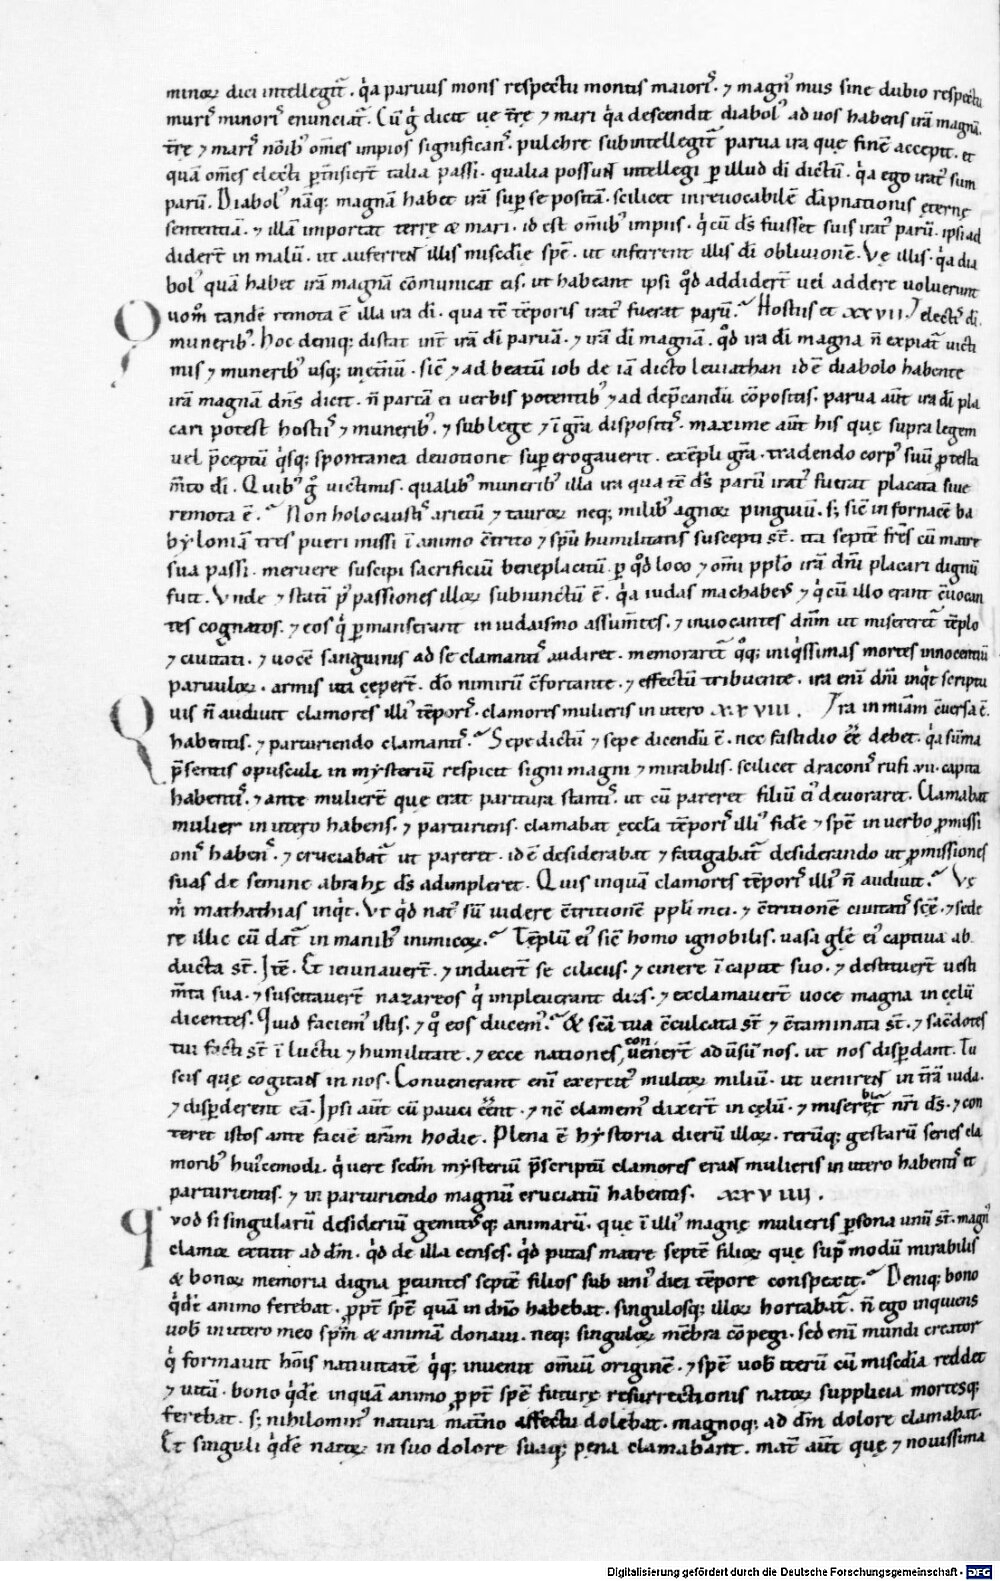 minoꝝ dici intellegit᷑. q̇a paruus mons respectu montis maiorꝭ. ⁊ magnꝰ mus sine dubio respectu
murꝭ minorꝭ enunciat᷑. Cū g̊ dicit uę tr̄ę ⁊ mari q̇a descendit diabolꝰ ad uos habens irā magnā.
tr̄ę ⁊ marꝭ nōibꝰ om̄es impios significanꝭ. pulchre subintellegit᷑ parua ira quę finē accepit. et
quā om̄es electi ꝑtn̄sier̄t talia passi. qualia possunt intellegi ꝑ illud dī dictū. q̇a ego iratꝰ sum
parū. Diabolꝰ nāq; magnā habet irā suꝑ se positā. scilicet inreuocabilē dāpnationis ęternę
sententiā. ⁊ illā importat terrę & mari. id est om̄ibꝰ impiis. q̇ cū ds̄ fuisset suis iratꝰ parū. ipsi ad
dider̄t in malū. ut auferrent illis misc̄die spē. ut inferrent illis dī obliuionē. Vę illis. q̇a dia
bolꝰ quā habet irā magnā cōmunicat eis. ut habeant ipsi q̊d addider̄t uel addere voluerunt
Quom̄ tandē remota ē illa ira dī. qua tē tēporis iratꝰ fuerat parū. Hostiis et XXVII. electꝭ dī.
muneribꝰ. hoc deniq; distat int̄ irā dī paruā. ⁊ irā dī magnā. q̊d ira dī magna n̄ expiat᷑ victi
mis ⁊ muneribꝰ usq; inęt̄nū. sic̄ ⁊ ad beatū iob de iā dicto leuiathan id ē diabolo habente
irā magnā dn̄s dicit. n̄ parcā ei verbis potentibꝰ ⁊ ad dep̄candū cōpositis. parua aūt ira dī pla
cari potest hostiꝭ ⁊ muneribꝰ. ⁊ sub lege ⁊ ī gr̄a dispositꝭ. maxime aūt his quę supra legem
uel p̄ceptū q̇sq; spontanea deuotione suꝑerogauerit. exēpli gr̄a. tradendo corpꝰ suū ꝓ testa
m̄to dī. Quibꝰ g̊ victimis. qualibꝰ muneribꝰ illa ira qua tē ds̄ parū iratꝰ fuerat placata siue
remota ē. Non holocaustꝭ arietū ⁊ tauroꝝ neq; milibꝰ agnoꝝ pinguiū. s; sic̄ in fornacē ba
byloniā tres pueri missi ī animo ⁊trito ⁊ sp̄u humilitatis suscepti st̄. ita septē fr̄es cū matre
sua passi. meruere suscipi sacrificiū beneplacitū. ꝑ q̊d loco ⁊ omī pp̄lo irā dn̄i placari dignū
fuit. Vnde ⁊ statī p̄ passiones illoꝝ subiunctū ē. q̇a iudas machabeꝰ ⁊ q̇ cū illo erant ⁊uocan
tes cognatos. ⁊ eos q̇ ꝑmanserant in iudaismo assum̄tes. ⁊ inuocantes dn̄m ut miseret᷑ tēplo
⁊ ciuitati. ⁊ uocē sanguinis ad se clamantꝭ audiret. memoraret᷑ q̊q; iniq̇ssimas mortes innocentiū
paruuloꝝ. armis uti cęper̄t. dō nimirū ⁊fortante. ⁊ effectū tribuente. ira enī dn̄i inq̇t scriptu
Quis n̄ audiuit clamores illiꝰ tēporꝭ. clamores mulieris in utero XXVIII. Ira in miām ⁊uersa ē.
habentis. ⁊ parturiendo clamantꝭ. Sepe dictū ⁊ sepe dicendū ē. nec fastidio eē debet. q̇a sūma
p̄sentis opusculi in mysteriū respicit signi magni ⁊ mirabilis. scilicet draconꝭ rufi .vii. capita
habentꝭ. ⁊ ante mulierē que erat paritura stantꝭ. ut cū pareret filiū eiꝰ deuoraret. Clamabat
mulier in utero habens. ⁊ parturiens. clamabat ęccl̄a tēporꝭ illiꝰ fidē ⁊ spē in verbo ꝓmissi
onꝭ habenꝭ. ⁊ cruciabat᷑ ut pareret. id ē desiderabat ⁊ fatigabat᷑ desiderando ut ꝓmissiones
suas de semine abrahę ds̄ adimpleret. Quis inquā clamores tēporꝭ illiꝰ n̄ audiuit. Vę
m̄ mathathias inq̇t. Vt q̊d natꝰ sū uidere ⁊tritionē ppl̄i mei. ⁊ ⁊tritionē ciuitatꝭ scē. ⁊ sede
re illic cū dat᷑ in manibꝰ inimicoꝝ. Tēplū eiꝰ sic̄ homo ignobilis. uasa gl̄ę eiꝰ captiua ab
ducta st̄. Itē. Et ieiunauer̄t. ⁊ induer̄t se ciliciis. ⁊ cinere ī capite suo. ⁊ destituer̄t uesti
m̄ta sua. ⁊ suscitauer̄t nazareos q̇ impleuerant dies. ⁊ exclamauer̄t uoce magna in cęlū
dicentes. Quid faciemꝰ istis. ⁊ q̊ eos ducemꝰ. & sc̄a tua ⁊culcata st̄. ⁊ ⁊taminata st̄. ⁊ sac̄dotes
tui facti st̄ ī luctu ⁊ humilitate. ⁊ ecce nationes conuener̄t aduersū nos. ut nos disꝑdant. Tu
scis quę cogitant in nos. Conuenerant enī exercitꝰ multoꝝ miliū. ut uenirent in tr̄ā iuda.
⁊ disꝑderent eā. Ipsi aūt cū pauci eēnt. ⁊ nc̄ clamemꝰ dixer̄t in cęlū. ⁊ miserebit᷑ nr̄i ds̄. ⁊ con
teret istos ante faciē nr̄am hodie. Plena ē hystoria dierū illoꝝ. rerūq; gestarū series cla
moribꝰ huiꝰcemodi. q̇ uere scdm̄ mysteriū p̄scriptū clamores erant mulieris in utero habentꝭ et
parturientis. ⁊ in parturiendo magnū cruciatū habentis. XXVIIII.
Quod si singularū desideriū gemitꝰq; animarū. que ī illiꝰ magnę mulieris ꝑsona unū st̄. magnꝰ
clamor extitit ad dn̄m. q̊d de illa censes. q̊d putas matre septē filioꝝ quę supͣ modū mirabilis
& bonoꝝ memoria digna ꝑeuntes septē filios sub uniꝰ diei tēpore conspexit. Deniq; bono
q̇dē animo ferebat. ꝓpt̄ spē quā in dn̄o habebat. singulosq; illoꝝ hortabat᷑. n̄ ego inquiens
uob̄ in utero meo sp̄m & animā donaui. neq; singuloꝝ mēbra cōpegi. sed enī mundi creator
q̇ formauit hōis natiuitatē q̇q; inuenit omīū originē. ⁊ spm̄ uob̄ iterū cū misc̄dia reddet
⁊ uitā. bono q̇dē inquā animo ꝓpt̄ spē futurę resurrectionis natoꝝ supplicia mortesq;
ferebat. s; nihilominꝰ natura mat̄no affectu dolebat. magnoq; ad dn̄m dolore clamabat.
Et singuli q̇dē natoꝝ in suo dolore suaq; pęna clamabant. mat̄ aūt quę ⁊ nouissima
Digitalisierung gefördert durch die Deutsche Forschungsgemeinschaft - DFG